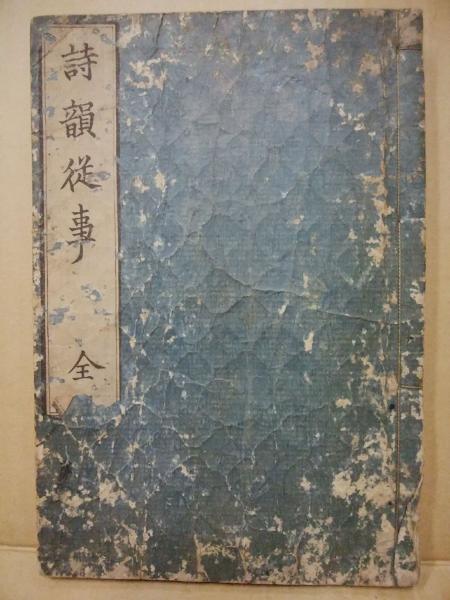 詩韻従事 全